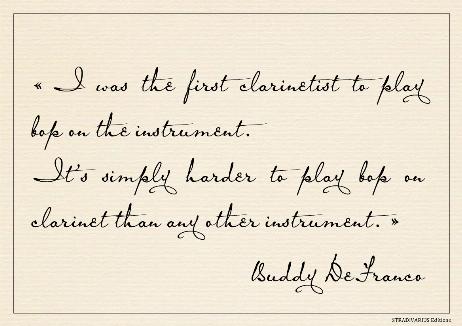 « I was the first clarinetist to play
bop on the instrument.
It's simply harder to play bop on
clarinet than any other instrument. »
Buddy DeFranco
STRADIVARIUS Editions